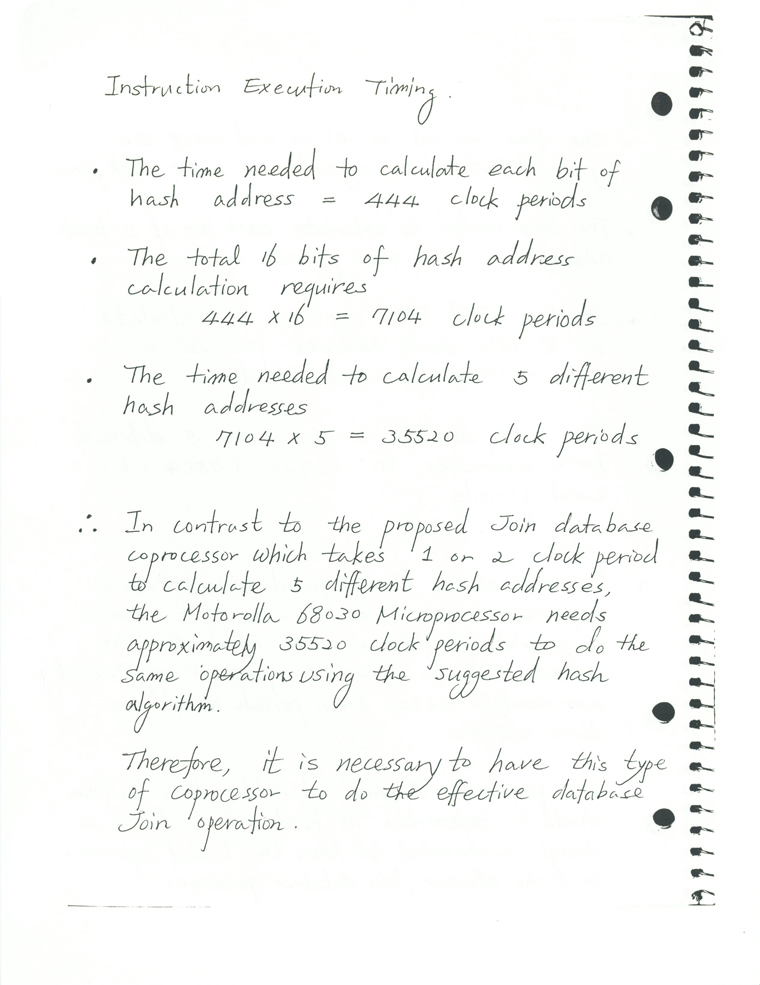 Instruction Execution Timing.
• The time needed to calculate each bit of
hash address = 444 clock periods
• The total 16 bits of hash address
calculation requires
444 x 16 = 7104 clock periods
• The time needed to calculate 5 different
hash addresses
7104 x 5 = 35520 clock periods
∴ In contrast to the proposed Join database
coprocessor which takes 1 or 2 clock period
to calculate 5 different hash addresses,
the Motorolla 68030 Microprocessor needs
approximately 35520 clock periods to do the
same operations using the suggested hash
algorithm.
Therefore, it is necessary to have this type
of coprocessor to do the effective database
Join operation.